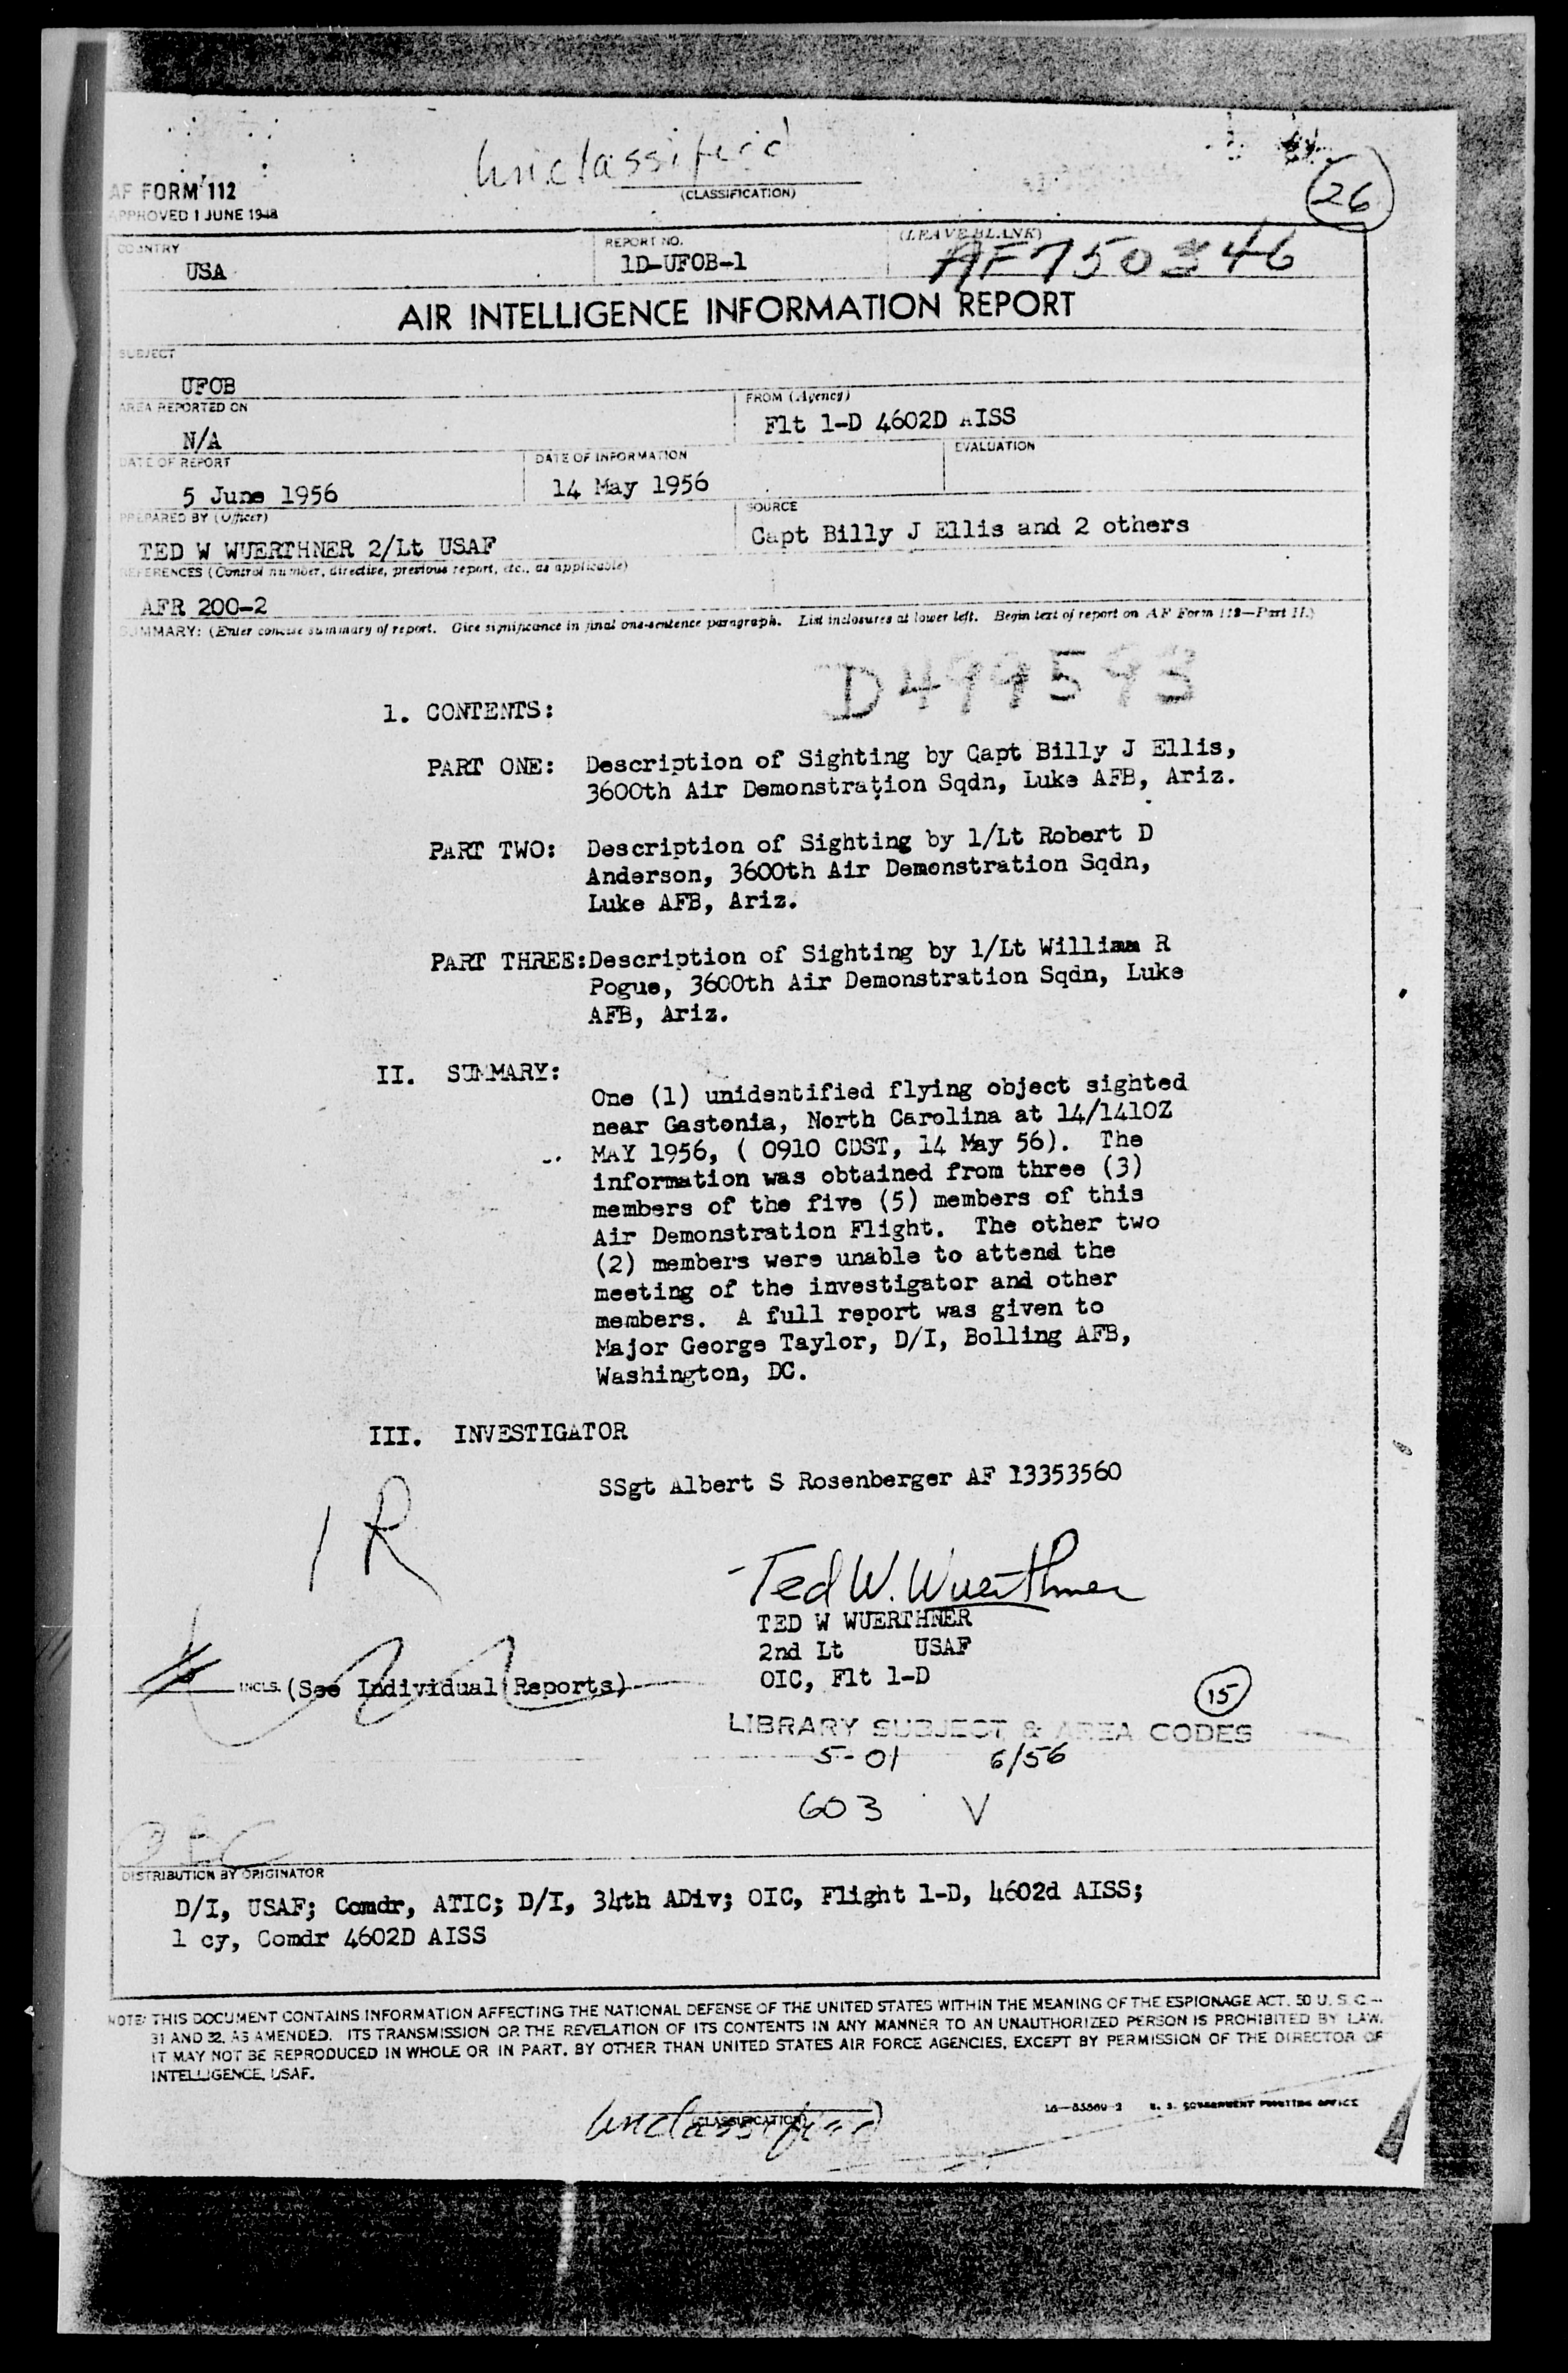 Unclassifeid
(CLASSIFICATION)
26
AF FORM 112
APPROVED 1 JUNE 1948
COUNTRY
USA
REPORT NO.
1D-UFOB-1
(LEAVE BLANK)
AF750346
AIR INTELLIGENCE INFORMATION REPORT
SUBJECT
UFOB
AREA REPORTED ON
N/A
FROM (Agency)
Flt 1-D 4602D AISS
DATE OF REPORT
5 June 1956
DATE OF INFORMATION
14 May 1956
EVALUATION
PREPARED BY (Officer)
TED W WUERTHNER 2/Lt USAF
SOURCE
Capt Billy J Ellis and 2 others
REFERENCES (Control number, directive, previous report, etc., as applicable)
AFR 200-2
SUMMARY: (Enter concise summary of report. Give significance in final one-sentence paragraph. List inclosures at lower left. Begin text of report on AF Form 112—Part II.)
D499593
1. CONTENTS:
PART ONE: Description of Sighting by Capt Billy J Ellis,
3600th Air Demonstration Sqdn, Luke AFB, Ariz.
PART TWO: Description of Sighting by 1/Lt Robert D
Anderson, 3600th Air Demonstration Sqdn,
Luke AFB, Ariz.
PART THREE:Description of Sighting by 1/Lt William R
Pogue, 3600th Air Demonstration Sqdn, Luke
AFB, Ariz.
II. SUMMARY:
One (1) unidentified flying object sighted
near Gastonia, North Carolina at 14/1410Z
MAY 1956, ( 0910 CDST, 14 May 56). The
information was obtained from three (3)
members of the five (5) members of this
Air Demonstration Flight. The other two
(2) members were unable to attend the
meeting of the investigator and other
members. A full report was given to
Major George Taylor, D/I, Bolling AFB,
Washington, DC.
III. INVESTIGATOR
SSgt Albert S Rosenberger AF 13353560
1 R
Ted W. Wuerthner
TED W WUERTHNER
2nd Lt USAF
OIC, Flt 1-D
INCLS. (See Individual Reports)
15
LIBRARY SUBJECT & AREA CODES
5-01 6/56
603 V
DISTRIBUTION BY ORIGINATOR
D/I, USAF; Comdr, ATIC; D/I, 34th ADiv; OIC, Flight 1-D, 4602d AISS;
1 cy, Comdr 4602D AISS
NOTE: THIS DOCUMENT CONTAINS INFORMATION AFFECTING THE NATIONAL DEFENSE OF THE UNITED STATES WITHIN THE MEANING OF THE ESPIONAGE ACT, 50 U. S. C.—
31 AND 32, AS AMENDED. ITS TRANSMISSION OR THE REVELATION OF ITS CONTENTS IN ANY MANNER TO AN UNAUTHORIZED PERSON IS PROHIBITED BY LAW.
IT MAY NOT BE REPRODUCED IN WHOLE OR IN PART, BY OTHER THAN UNITED STATES AIR FORCE AGENCIES, EXCEPT BY PERMISSION OF THE DIRECTOR OF
INTELLIGENCE, USAF.
(CLASSIFICATION)
Unclassified
U. S. GOVERNMENT PRINTING OFFICE